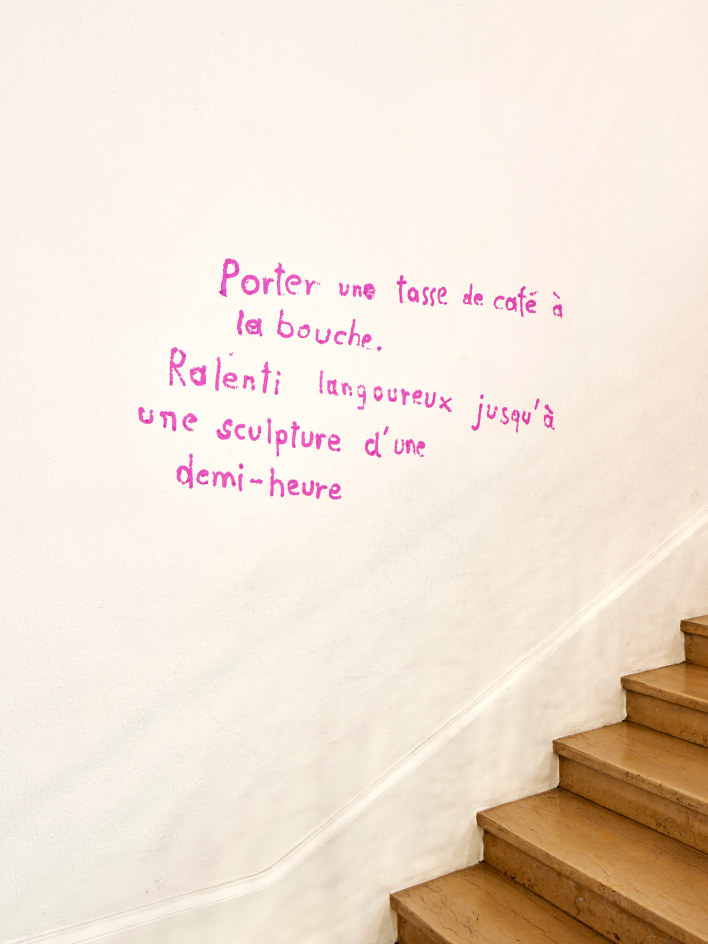 Porter une tasse de café à
la bouche.
Ralenti langoureux jusqu'à
une sculpture d'une
demi-heure